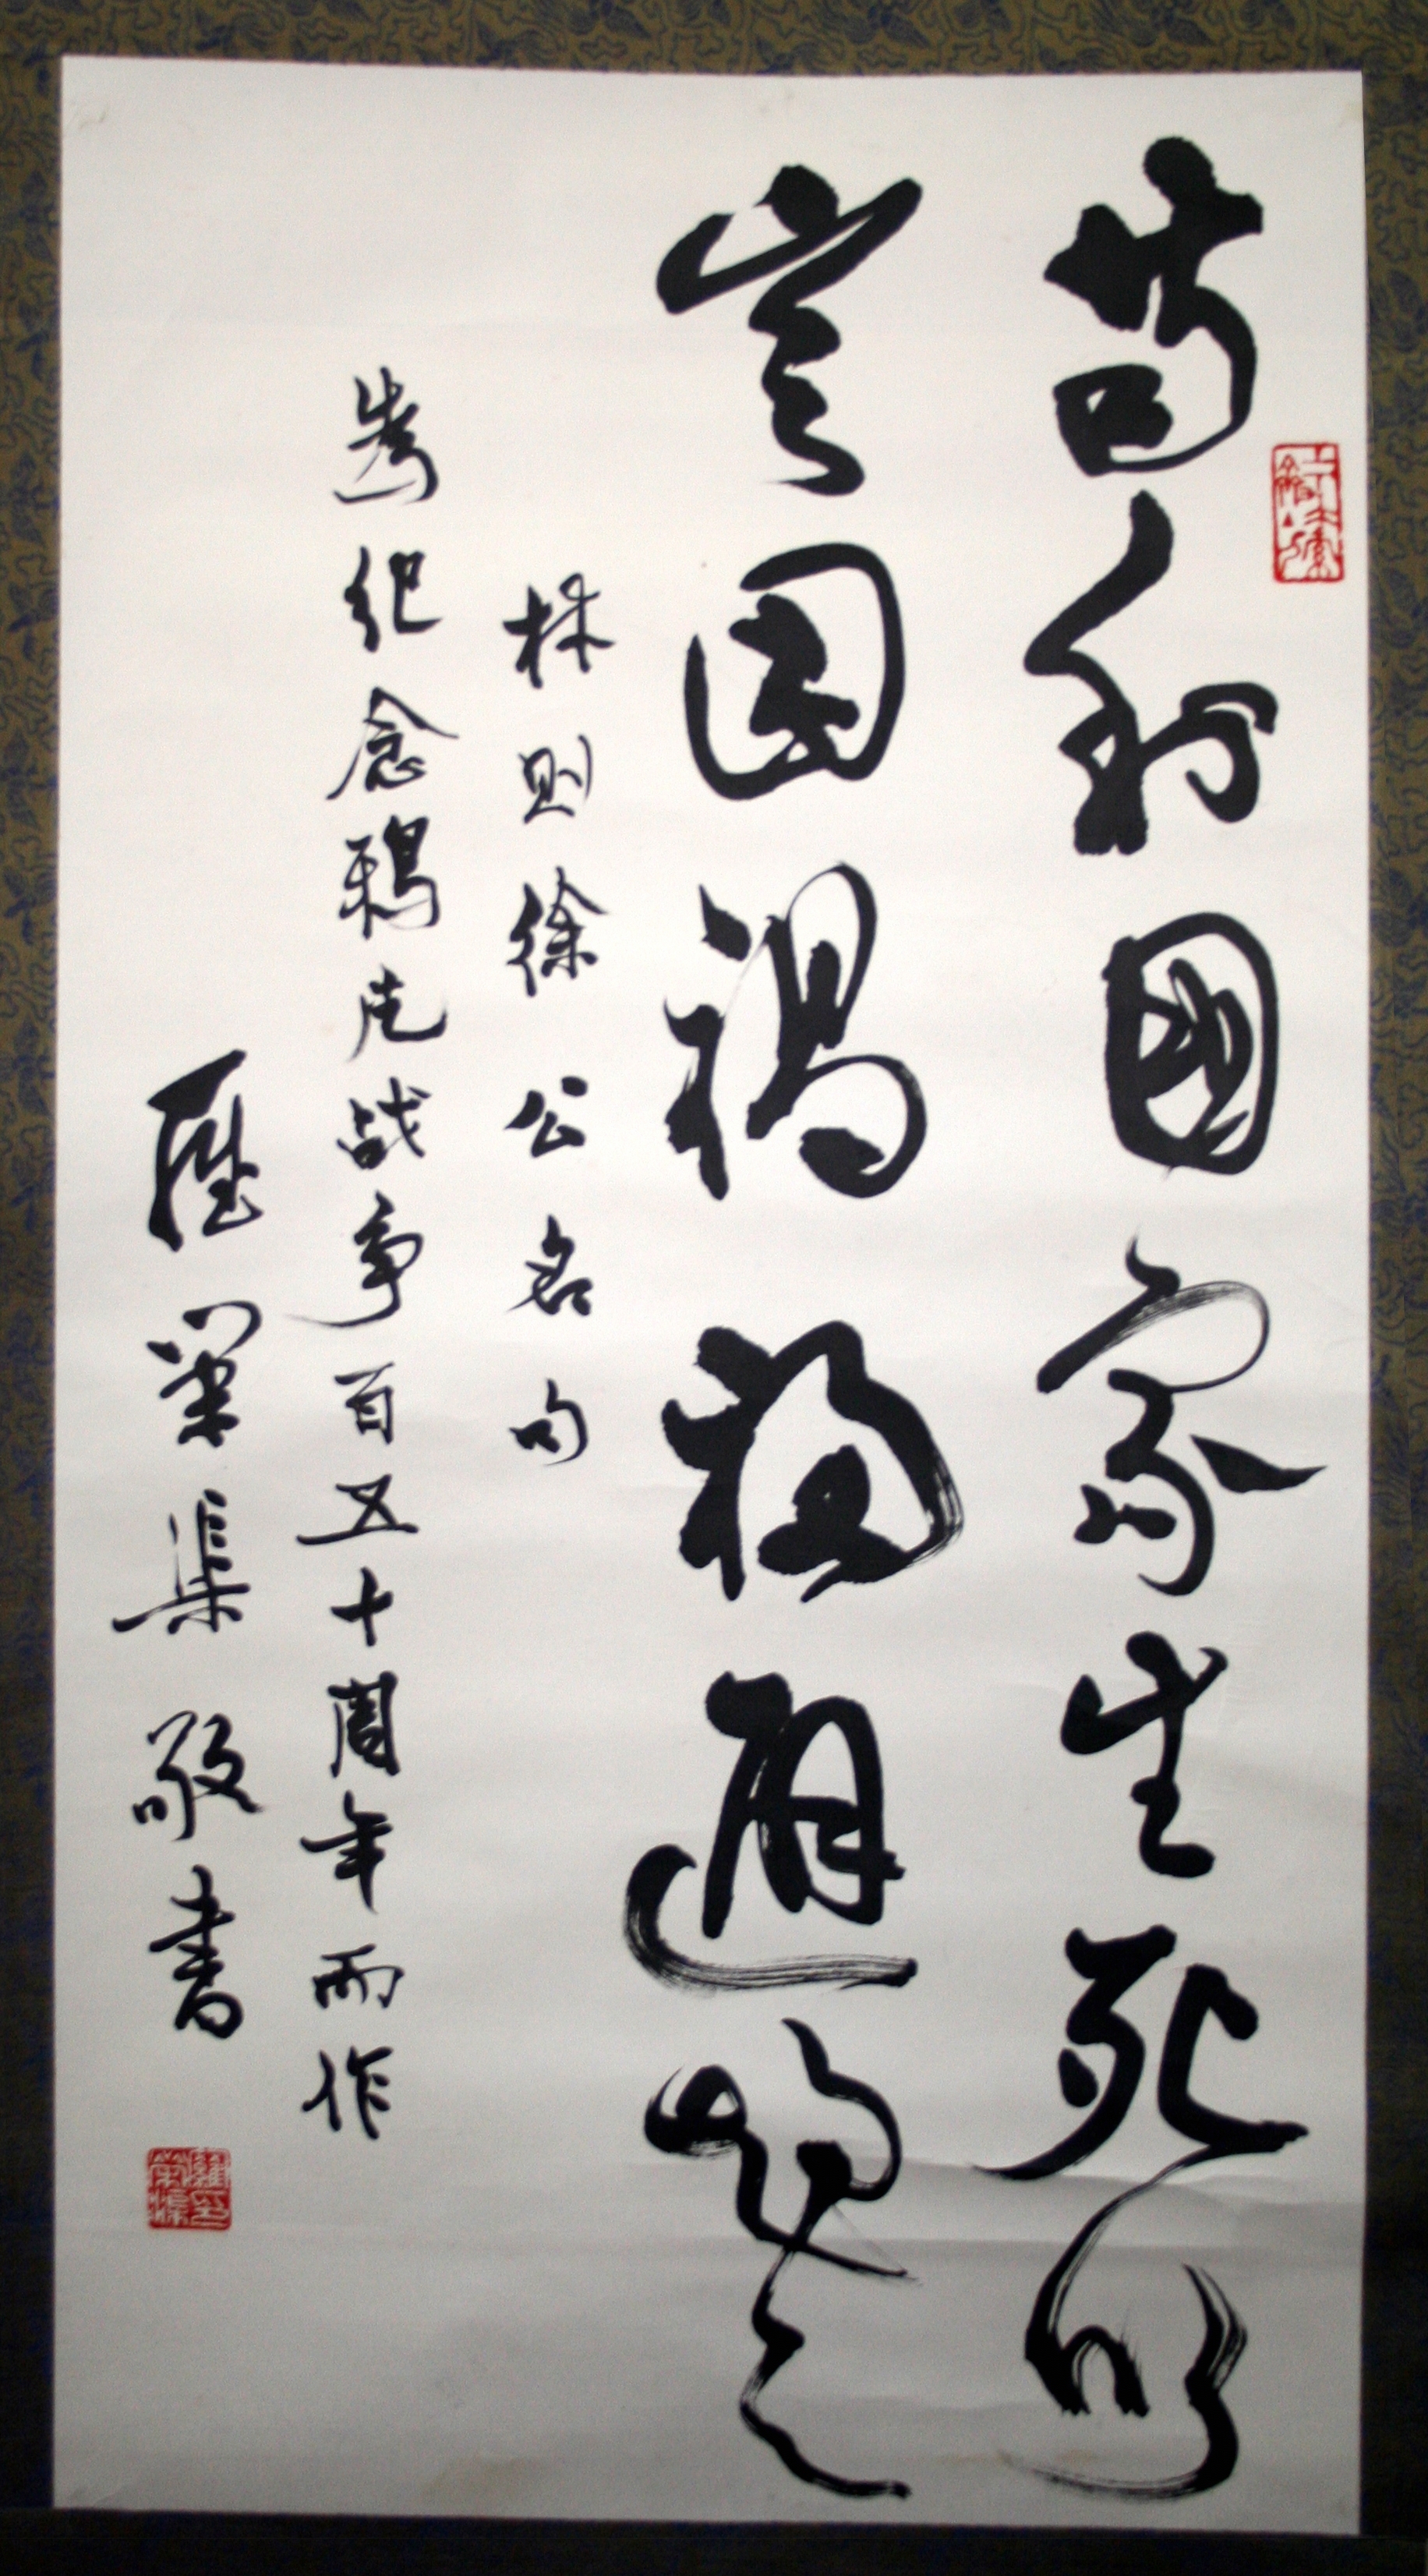 苟利國家生死以
豈因禍福避趨之
林则徐公名句
为纪念鸦片战争百五十周年而作
罗荣渠敬书